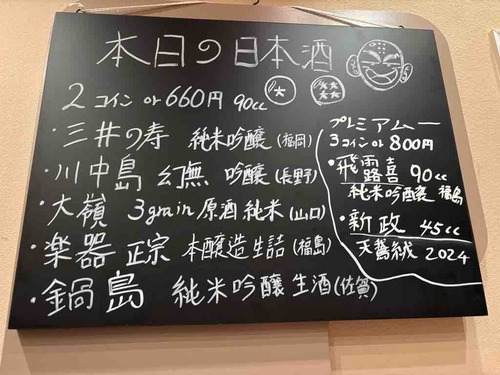 本日の日本酒
2コイン or 660円 90cc
・三井の寿 純米吟醸 (福岡)
・川中島 幻無 吟醸 (長野)
・大嶺 3grain 原酒 純米 (山口)
・楽器正宗 本醸造生詰 (福島)
・鍋島 純米吟醸 生酒 (佐賀)
プレミアムー
3コイン or 800円
・飛露喜 90cc
純米吟醸 福島
・新政 45cc
天鵞絨 2024